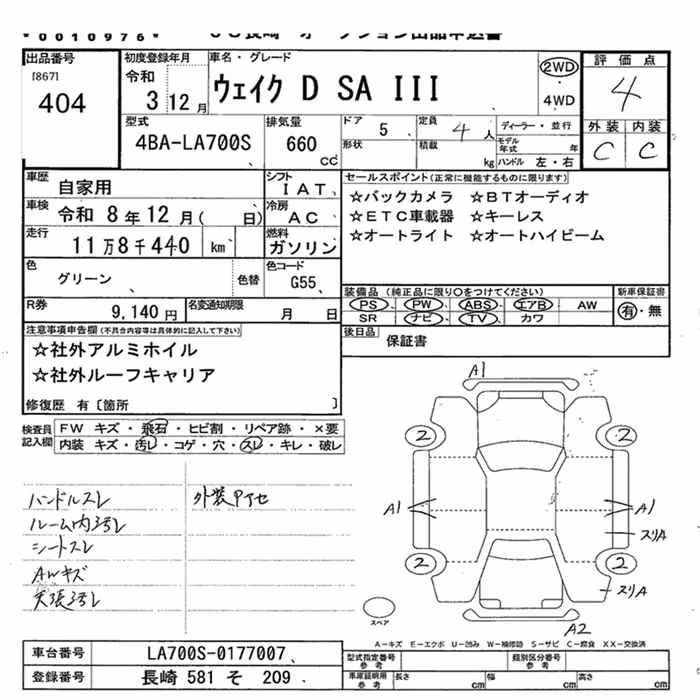 *0010976*
出品番号 初度登録年月 車名・グレード 評価点
[867] 令和 2WD
404 3 12月 ウェイク D SA III 4WD 4
型式 排気量 ドア 定員 ディーラー・並行 外装 内装
4BA-LA700S 660 cc 5 4人 モデル年式 年 C C
形状 積載 kg ハンドル 左・右
車歴 自家用 シフト IAT セールスポイント(正常に機能するものに限ります)
車検 令和 8年12月( 日) 冷房 AC ☆バックカメラ ☆BTオーディオ
走行 11万8千440 km 燃料 ガソリン ☆ETC車載器 ☆キーレス
☆オートライト ☆オートハイビーム
色 グリーン 色替 色コード G55
装備品(純正品に限り○をつけてください) 新車保証書
R券 9,140円 名変通知期限 月 日 PS PW ABS エアB AW 有・無
SR ナビ TV カワ
注意事項申告欄(不具合内容等は具体的に記入して下さい) 後日品 保証書
☆社外アルミホイル
☆社外ルーフキャリア
修復歴 有〔箇所 〕
検査員記入欄 FW キズ・飛石・ヒビ割・リペア跡・×要
内装 キズ・汚レ・コゲ・穴・スレ・キレ・破レ
ハンドルスレ 外装PTセ
ルーム内汚レ
シートスレ
AWキズ
天張汚レ
A1
2 2
A1 A1
スリA
2 2
スリA
スペア A2
A-キズ E-エクボ U-凹み W-補修跡 S-サビ C-腐食 XX-交換済
車台番号 LA700S-0177007 型式指定番号 参考 類別区分番号 参考
登録番号 長崎 581 そ 209 車庫証明用 参考 長さ cm 幅 cm 高さ cm